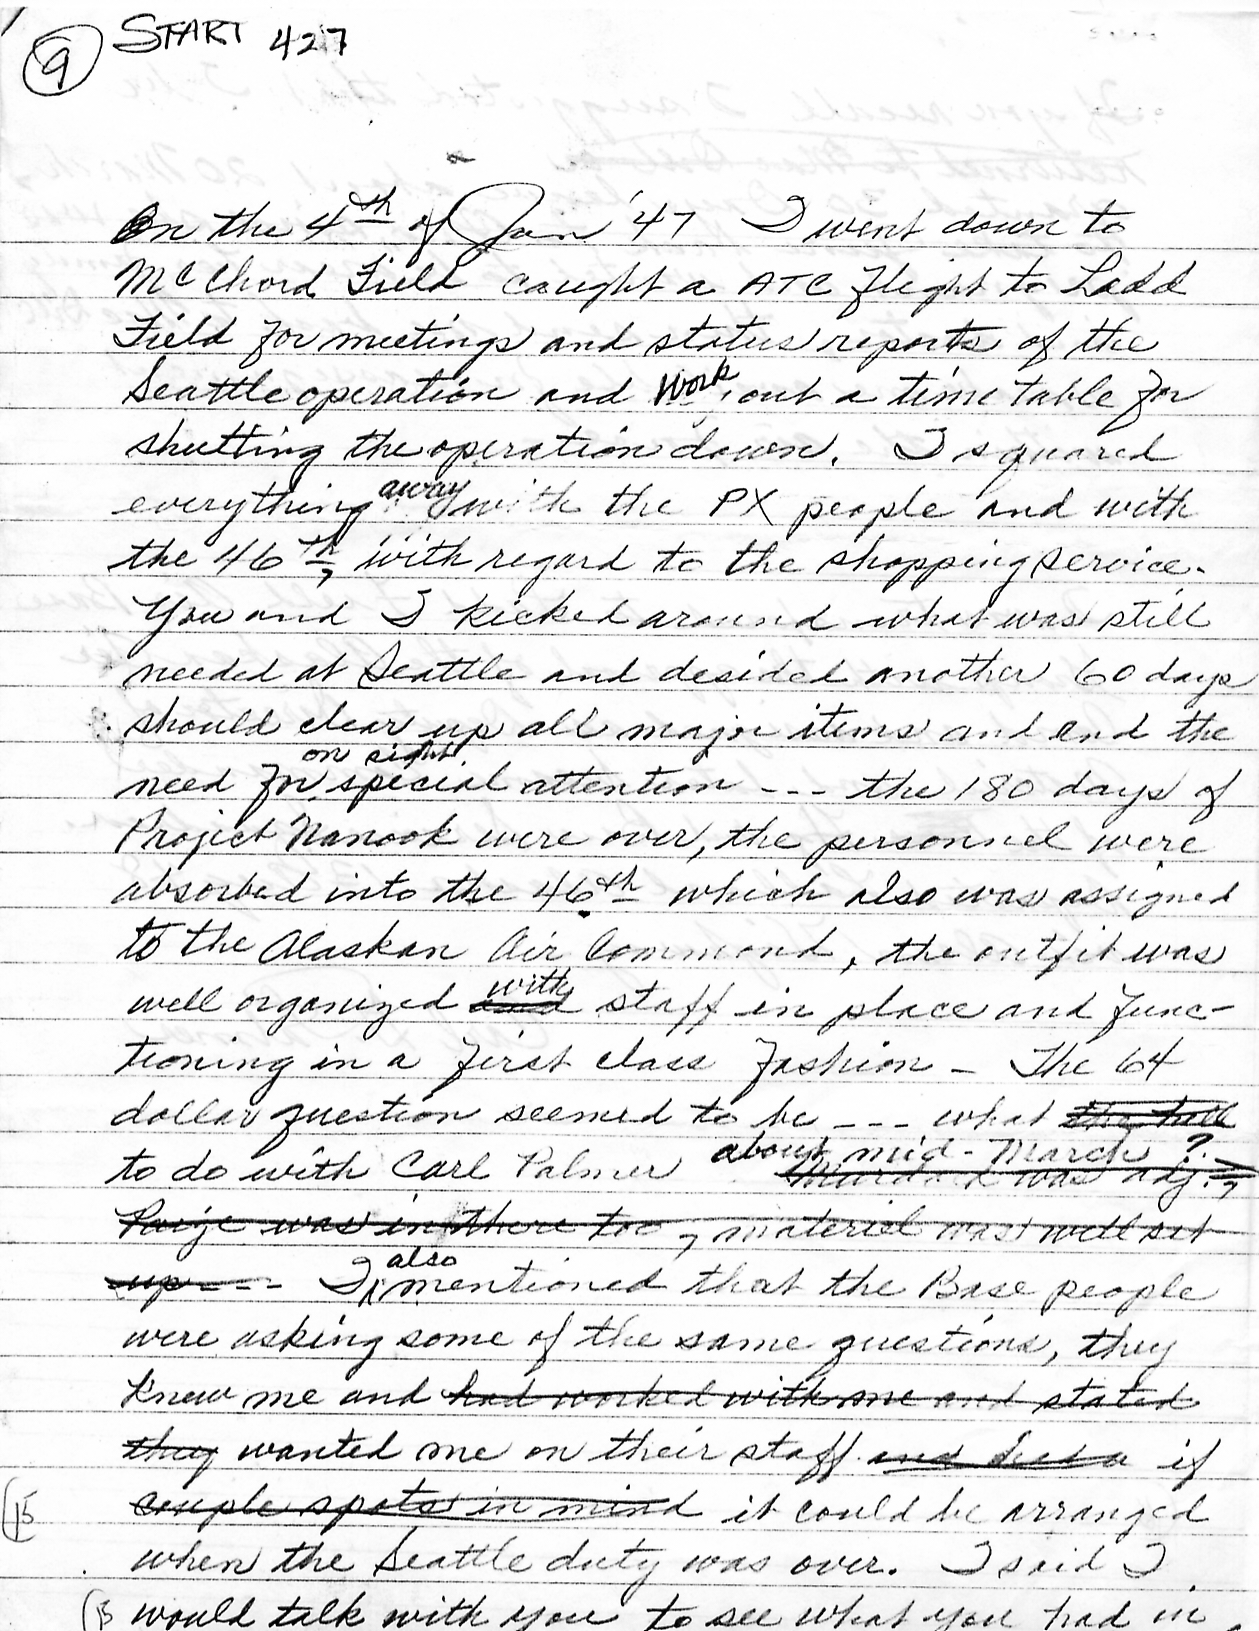 9 START 427
On the 4th of Jan '47 I went down to
McChord Field caught a ATC flight to Ladd
Field for meetings and status reports of the
Seattle operation and work out a time table for
shutting the operation down. I squared
everything away with the PX people and with
the 46th, with regard to the shopping service.
You and I kicked around what was still
needed at Seattle and desided another 60 days
should clear up all major items and end the
need for on sight special attention --- the 180 days of
Project Nanook were over, the personnel were
absorbed into the 46th which also was assigned
to the Alaskan Air Command, the outfit was
well organized with staff in place and func-
tioning in a first class fashion - The 64
dollar question seemed to be --- what the hell
to do with Carl Palmer about mid-March ?
Murdock was adj.,
Paige was in there too, materiel was well set
up --- I also mentioned that the Base people
were asking some of the same questions, they
knew me and had worked with me and stated
they wanted me on their staff and had a if
couple spots in mind it could be arranged
when the Seattle duty was over. I said I
would talk with you to see what you had in